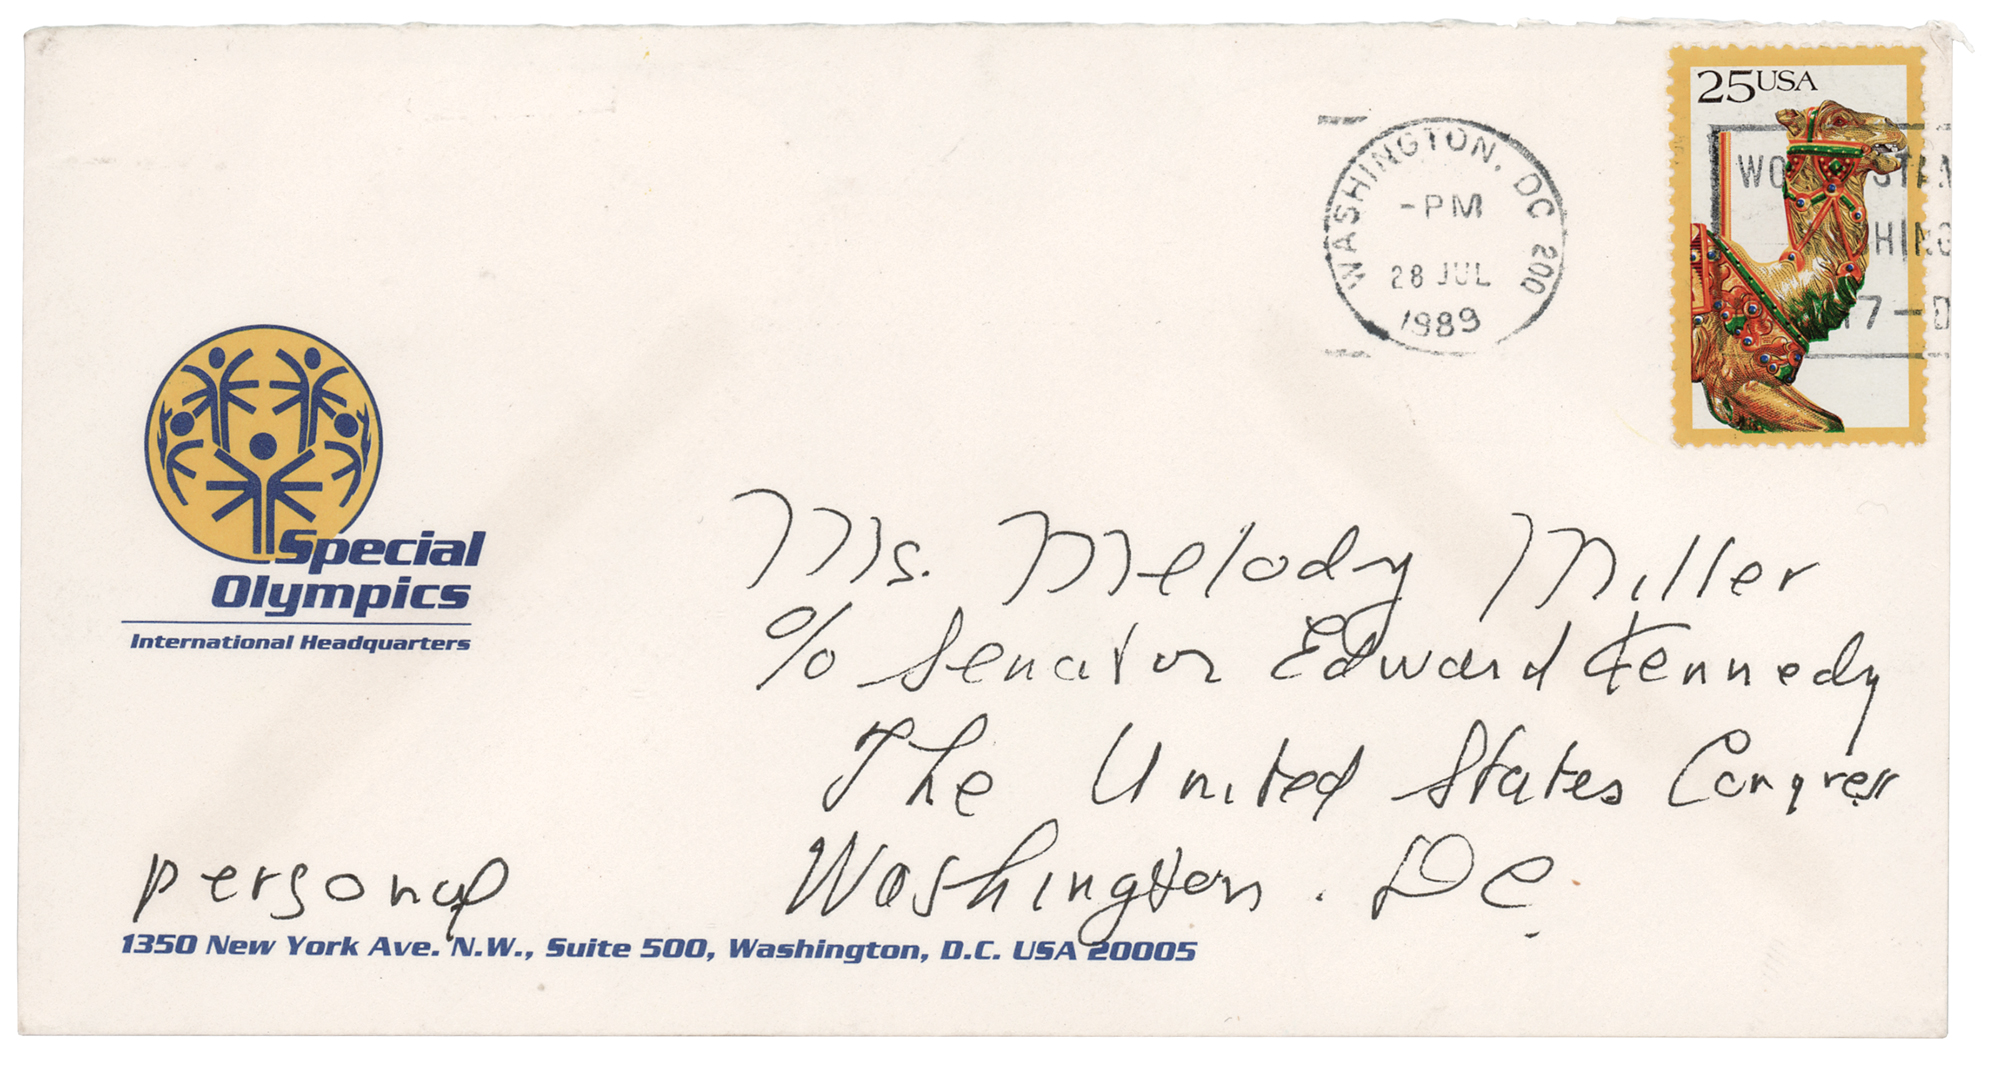 25 USA
WASHINGTON, DC 200
-PM
28 JUL
1989
17-D
Special
Olympics
International Headquarters
Ms. Melody Miller
% Senator Edward Kennedy
The United States Congress
Washington. DC.
personal
1350 New York Ave. N.W., Suite 500, Washington, D.C. USA 20005